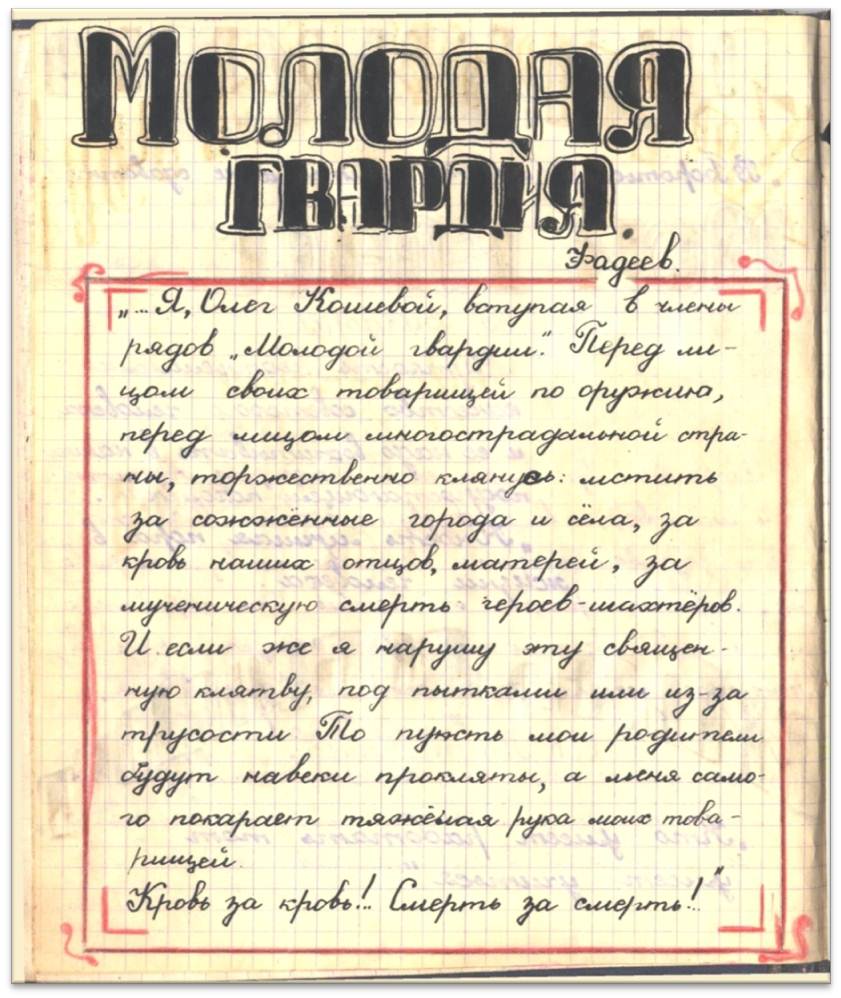 МОЛОДАЯ
ГВАРДИЯ.
Фадеев.
„... Я, Олег Кошевой, вступая в члены
рядов „Молодой гвардии". Перед ли-
цом своих товарищей по оружию,
перед лицом многострадальной стра-
ны, торжественно клянусь: мстить
за сожжённые города и сёла, за
кровь наших отцов, матерей, за
мученическую смерть героев-шахтёров.
И если же я нарушу эту священ-
ную клятву, под пытками или из-за
трусости То пусть мои родители
будут навеки прокляты, а меня само-
го покарает тяжёлая рука моих това-
рищей.
Кровь за кровь!.. Смерть за смерть!.."